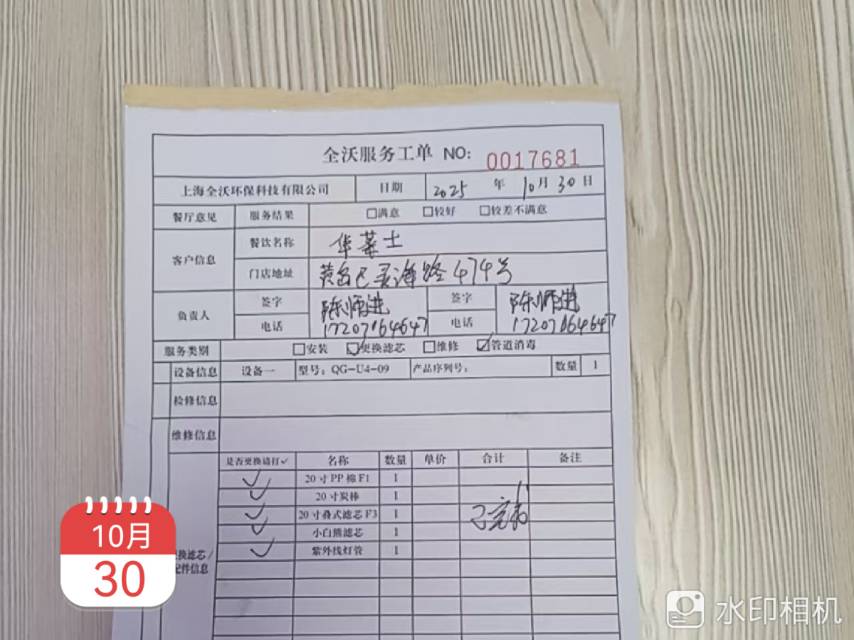 全沃服务工单 NO: 0017681
上海全沃环保科技有限公司 日期 2025 年 10 月 30 日
餐厅意见 服务结果 □满意 □较好 □较差不满意
客户信息 餐饮名称 华莱士
门店地址 黄岛区 海路474号
负责人 签字 陈师进 签字 陈师进
电话 17207164647 电话 17207164647
服务类别 □安装 ☑更换滤芯 □维修 ☑管道消毒
设备信息 设备一 型号: QG-U4-09 产品序列号: 数量 1
检修信息
维修信息
是否更换请打✓ 名称 数量 单价 合计 备注
✓ 20寸PP棉F1 1
✓ 20寸炭棒 1
✓ 20寸叠式滤芯F3 1
✓ 小白熊滤芯 1
✓ 紫外线灯管 1
换滤芯/
件信息
10月
30
水印相机